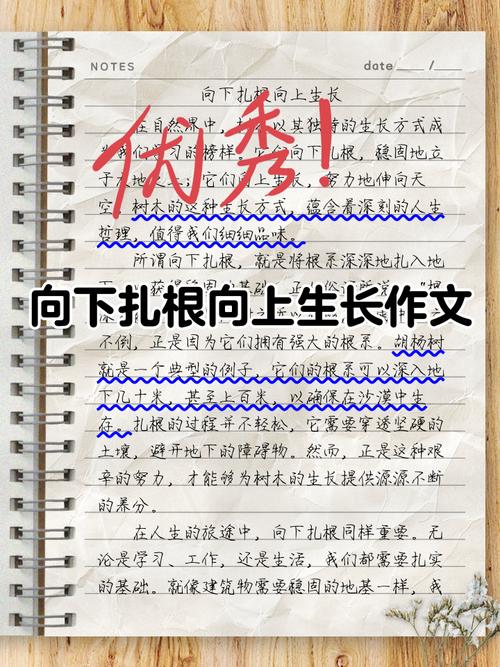 NOTES
date____ /____
向下扎根向上生长
优秀!
在自然界中,树木以其独特的生长方式成
为我们学习的榜样。它们向下扎根,稳固地立
于大地之上;它们向上生长,努力地伸向天
空。树木的这种生长方式,蕴含着深刻的人生
哲理,值得我们细细品味。
所谓向下扎根,就是将根系深深地扎入地
向下扎根向上生长作文
不倒,正是因为它们拥有强大的根系。胡杨树
就是一个典型的例子,它们的根系可以深入地
下几十米,甚至上百米,以确保在沙漠中生
存。扎根的过程并不轻松,它需要穿透坚硬的
土壤,避开地下的障碍物。然而,正是这种艰
辛的努力,才能够为树木的生长提供源源不断
的养分。
在人生的旅途中,向下扎根同样重要。无
论是学习、工作,还是生活,我们都需要扎实
的基础。就像建筑物需要稳固的地基一样,我